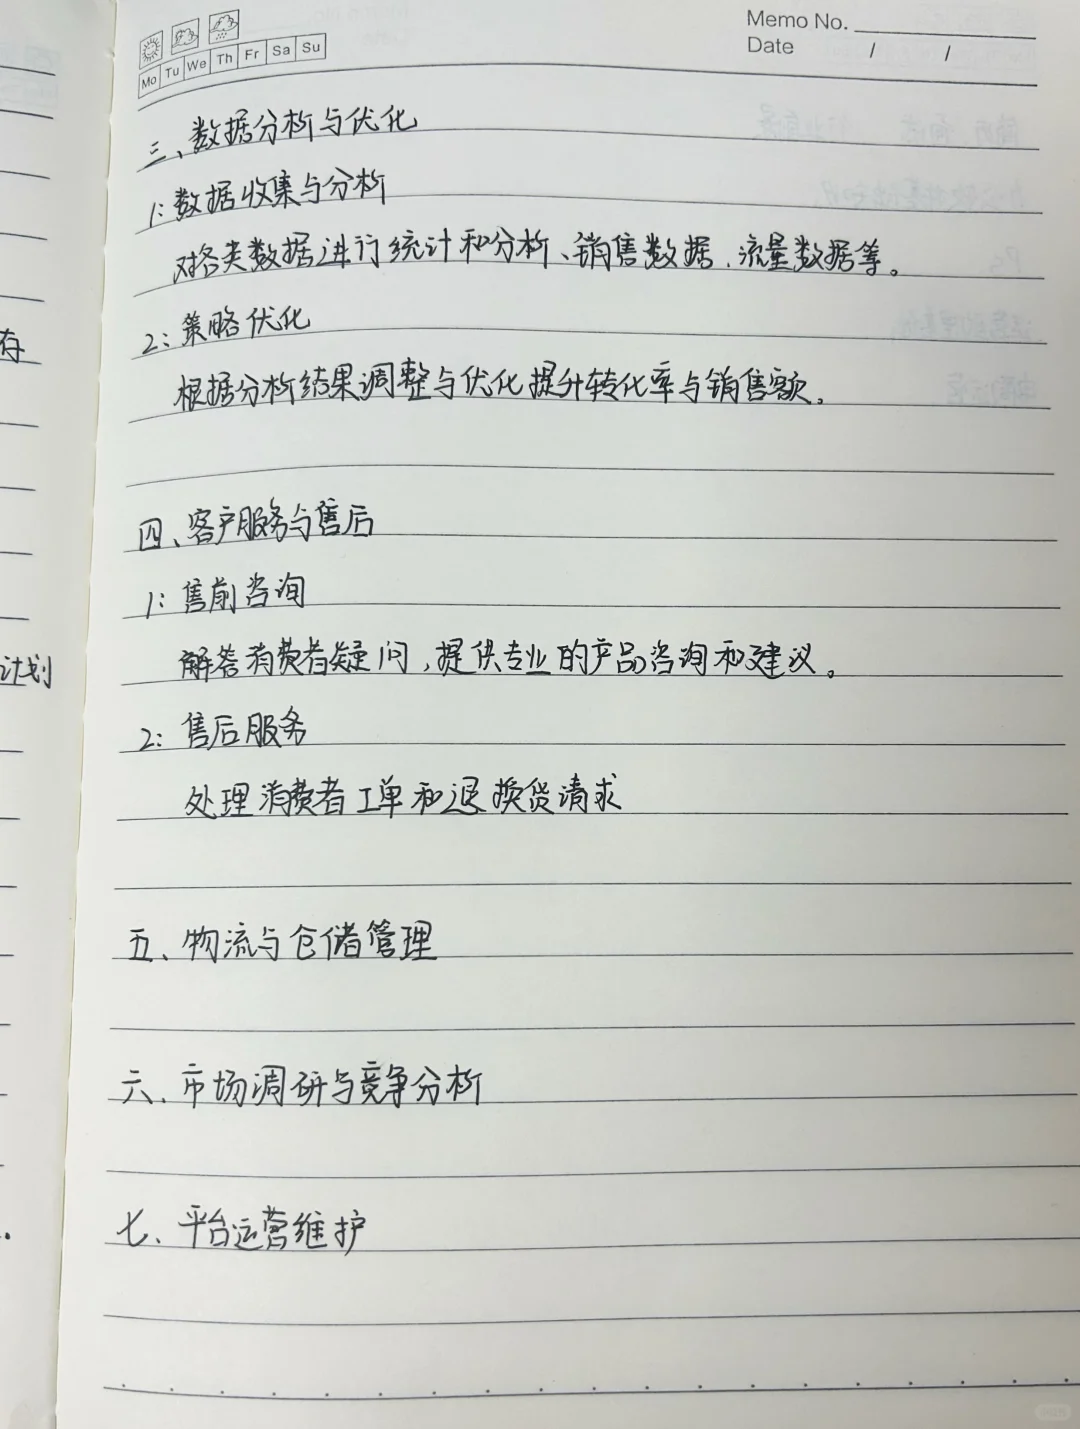 Memo No.
Date / /
Mo Tu We Th Fr Sa Su
三、数据分析与优化
1: 数据收集与分析
对各类数据进行统计和分析、销售数据、流量数据等。
2: 策略优化
根据分析结果调整与优化提升转化率与销售额。
四、客户服务与售后
1: 售前咨询
解答消费者疑问,提供专业的产品咨询和建议。
2: 售后服务
处理消费者工单和退换货请求
五、物流与仓储管理
六、市场调研与竞争分析
七、平台运营维护
存
计划